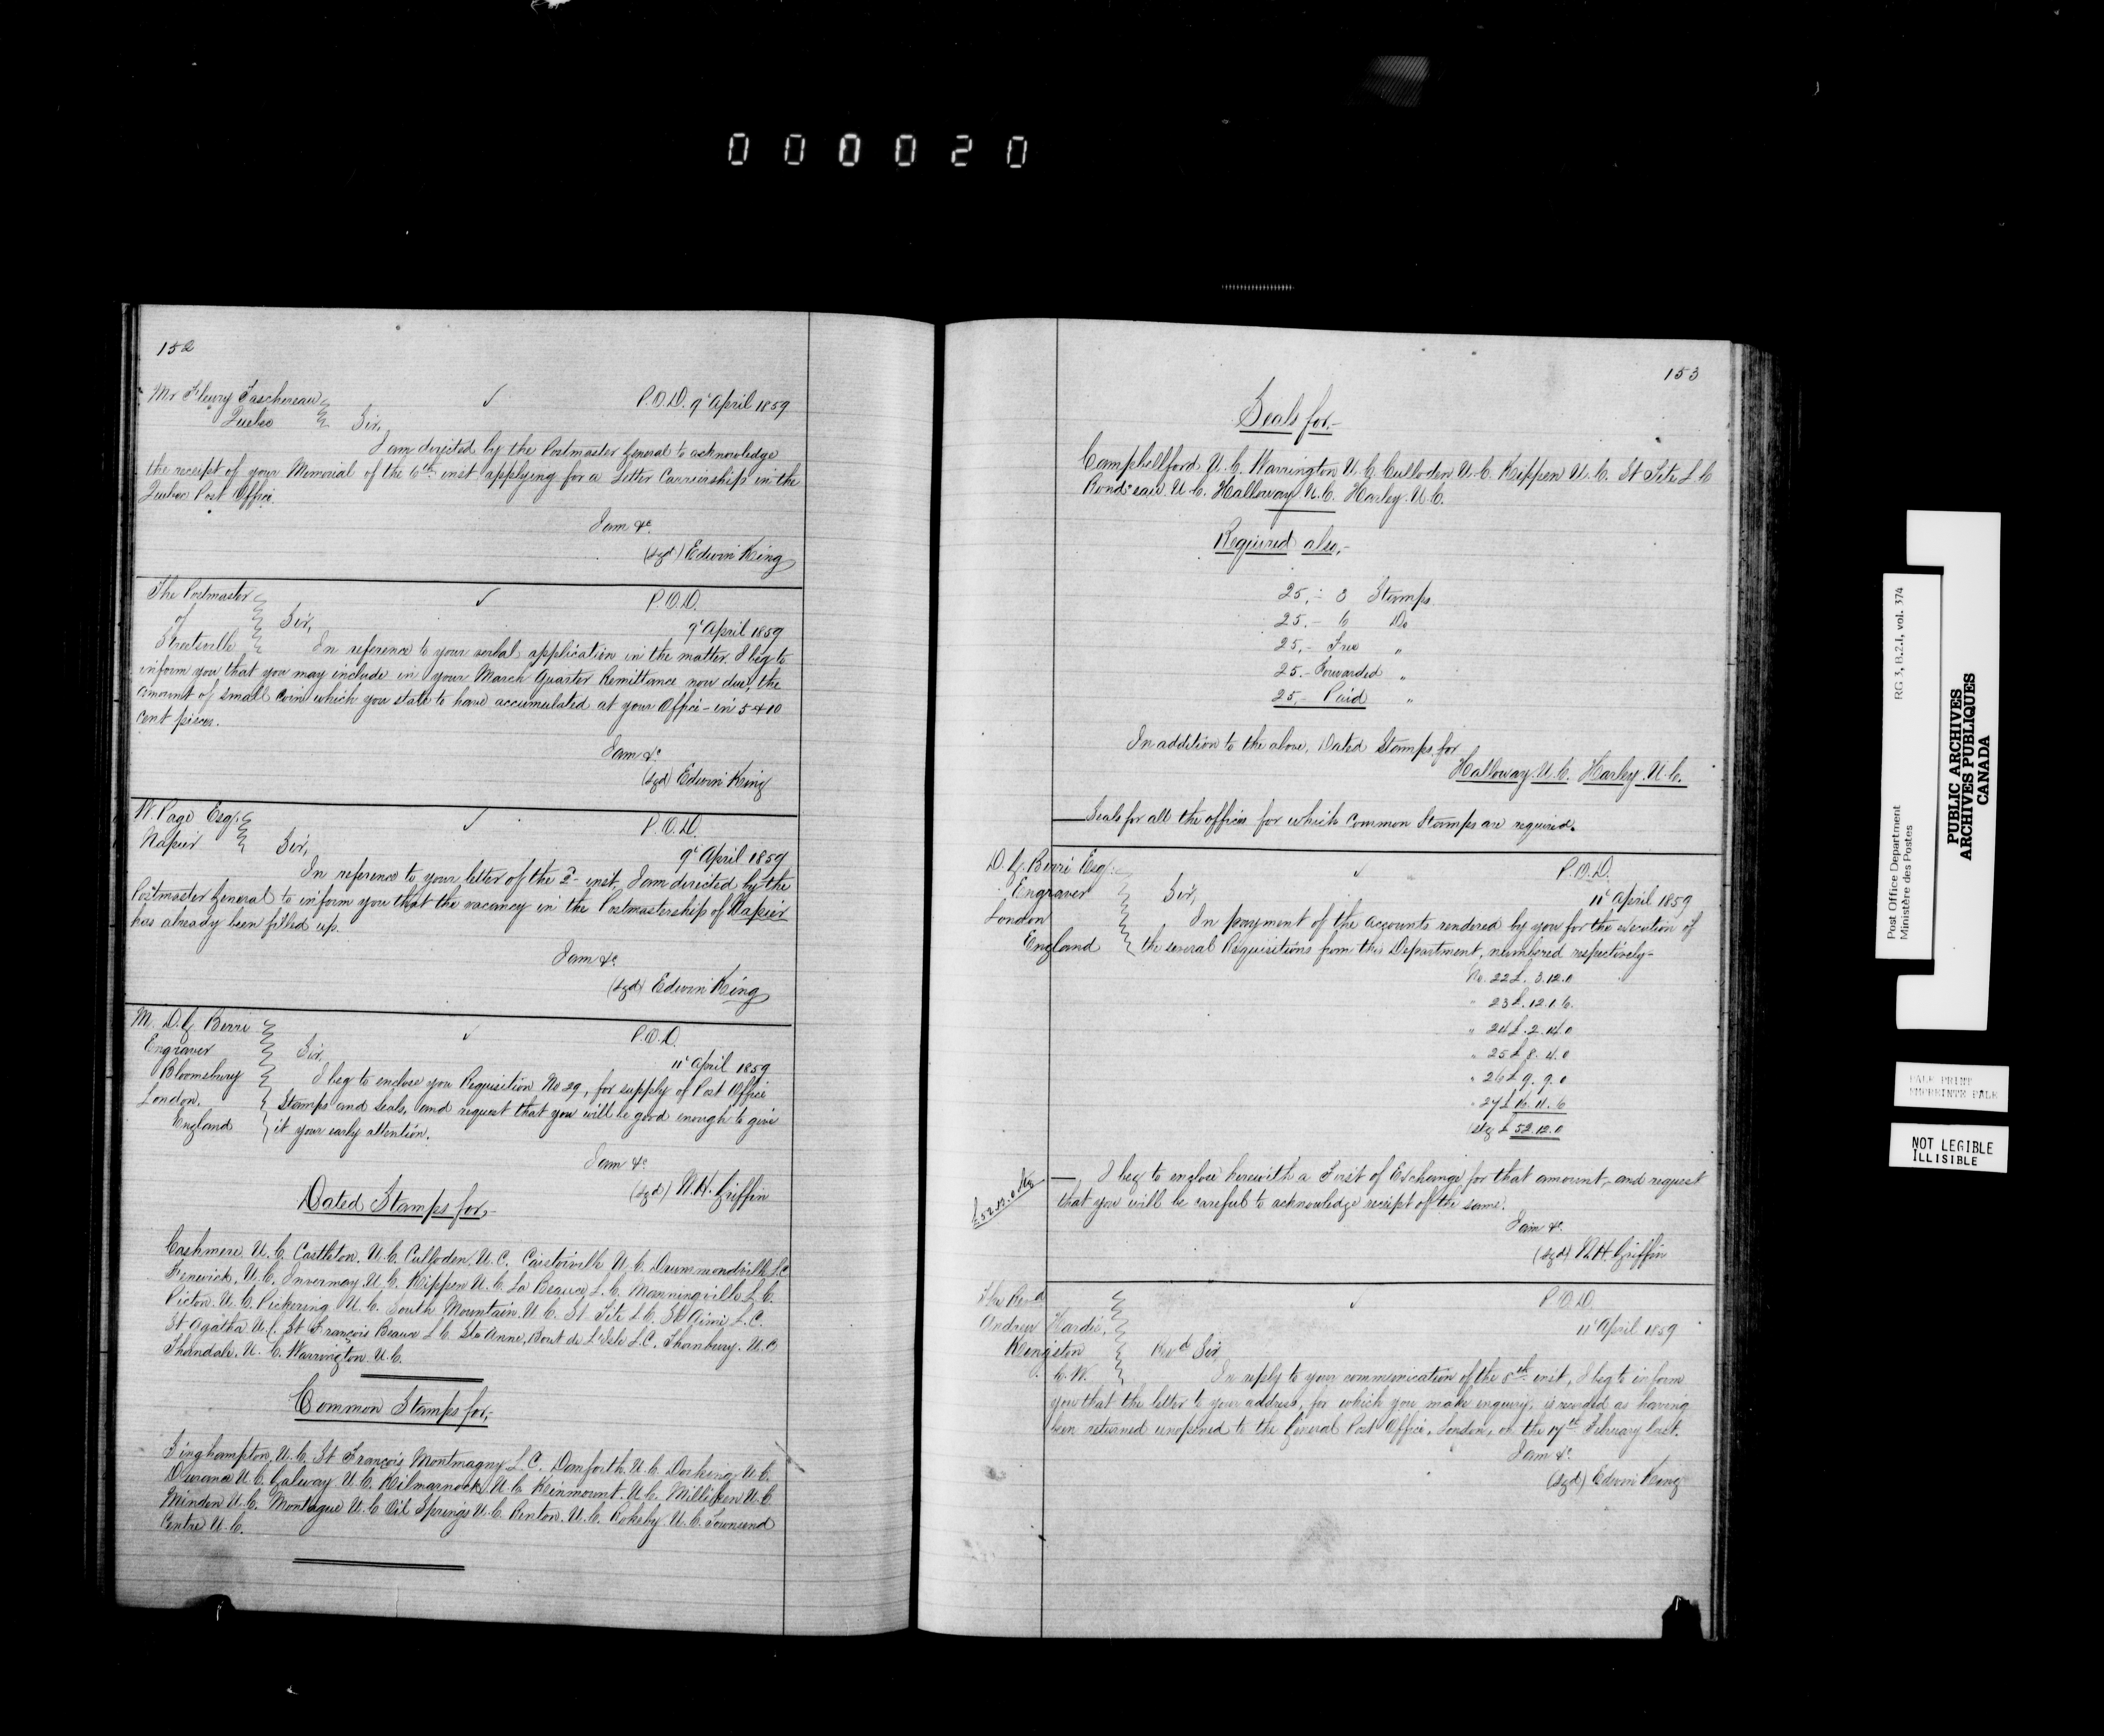 000020
152
Mr Fleury Taschereau
Quebec
P.O.D. 9' April 1859
Sir,
I am directed by the Postmaster General to acknowledge
the receipt of your Memorial of the 6th inst applying for a Letter Carriership in the
Quebec Post Office.
I am &c
(sgd) Edwin King
The Postmaster
of
Streetsville
P.O.D.
9' April 1859
Sir,
In reference to your verbal application in the matter. I beg to
inform you that you may include in your March Quarter Remittance now due, the
amount of small coin which you state to have accumulated at your Office - in 5 & 10
cent pieces.
I am &c
(sgd) Edwin King
W. Page Esq.
Napier
P.O.D.
9' April 1859
Sir,
In reference to your letter of the 2d inst, I am directed by the
Postmaster General to inform you that the vacancy in the Postmastership of Napier
has already been filled up.
I am &c
(sgd) Edwin King
M. D. G. Berri
Engraver
Bloomsbury
London.
England
P.O.D.
11' April 1859
Sir,
I beg to enclose you Requisition No 29, for supply of Post Office
Stamps and Seals, and request that you will be good enough to give
it your early attention.
I am &c
(sgd) W. H. Griffin
Dated Stamps for,-
Cashmere. U.C. Castleton. U.C. Culloden. U.C. Caistorville U.C. Drummondville L.C.
Fenwick. U.C. Invermay. U.C. Kippen U.C. La Beauce L.C. Manningville L.C.
Picton. U.C. Pickering U.C. South Mountain. U.C. St Tite L.C. St Aimé L.C.
St Agatha U.C. St François Beauce L.C. Ste Anne, Bout de L'Isle L.C. Thornbury. U.C
Thorndale. U.C. Warrington. U.C.
Common Stamps for,-
Singhampton, U.C. St François Montmagny L.C. Danforth. U.C. Dorking U.C.
U.C. Galway U.C. Kilmarnock U.C. Kinmount. U.C. Milliken U.C
Minden U.C. Montague U.C Oil Springs U.C. Renton. U.C. Rokeby U.C. Townsend
Centre U.C.
153
Seals for.-
Campbellford U.C. Warrington U.C. Culloden U.C. Kippen U.C. St Tite L.C
Rond-eau U.C. Halloway U.C. Harley. U.C.
Required also,-
25,- 3 Stamps
25.- 6 Do
25,- Free "
25.- Forwarded "
25,- Paid "
In addition to the above, Dated Stamps for
Halloway. U.C. Harley. U.C.
Seals for all the offices for which Common Stamps are required.
D. G. Berri Esq.
Engraver
London
England
P.O.D.
11' April 1859
Sir,
In payment of the accounts rendered by you for the execution of
the several Requisitions from this Department, numbered respectively-
No. 22 £. 3.12.0
" 23 £. 12.1.6.
" 24 £. 2.14.0
" 25 £ 8. 4. 0
" 26 £ 9. 9. 0
" 27 £ 16. 11. 6
Stg £ 52.12.0
£52.12.0 Stg
I beg to enclose herewith a First of Exchange for that amount, and request
that you will be careful to acknowledge receipt of the same.
I am &c
(sgd) W. H. Griffin
The Revd
Andrew Hardie,
Kingston
C.W.
P.O.D.
11' April 1859
Revd Sir
In reply to your communication of the 5th inst, I beg to inform
you that the letter to your address, for which you make enquiry, is recorded as having
been returned unopened to the General Post Office, London, on the 17th February last.
I am &c
(sgd) Edwin King
Post Office Department
Ministère des Postes
RG 3, B.2.I, vol. 374
PUBLIC ARCHIVES
ARCHIVES PUBLIQUES
CANADA
PALE PRINT
EMPREINTE PALE
NOT LEGIBLE
ILLISIBLE